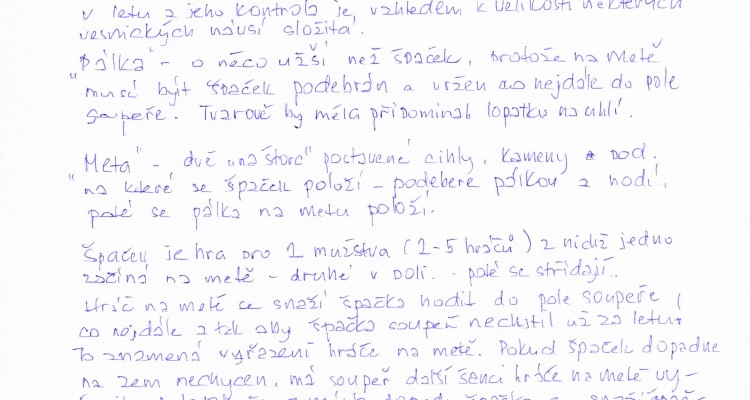 v letu a jeho kontrola je, vzhledem k velikosti některých
vesnických návsí složitá.
"Pálka" - o něco užší než špaček, protože na metě
musí být špaček podebrán a vržen co nejdále do pole
soupeře. Tvarově by měla připomínat lopatku na uhlí.
"Meta" - dvě "na štorc" postavené cihly, kameny a pod.
na které se špaček položí - podebere pálkou a hodí,
poté se pálka na metu položí.
Špaček je hra pro 2 mužstva (2-5 hráčů) z nichž jedno
začíná na metě - druhé v poli. - poté se střídají.
Hráč na metě se snaží špačka hodit do pole soupeře,
co nejdále a tak aby špačka soupeř nechytil už za letu.
To znamená vyřazení hráče na metě. Pokud špaček dopadne
na zem nechycen, má soupeř další šanci hráče na metě vy-